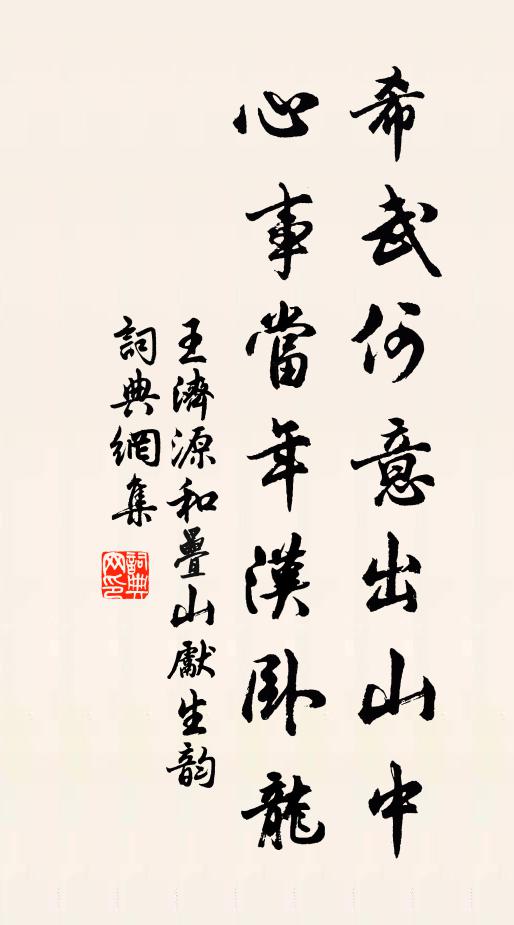 希武何意出山中
心事當年漢卧龍
王濟源和疊山獻生韵
詞典網集
詞典
网印